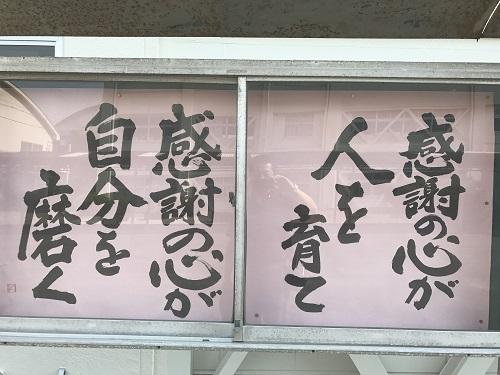 感謝の心が
人を
育て
感謝の心が
自分を
磨く